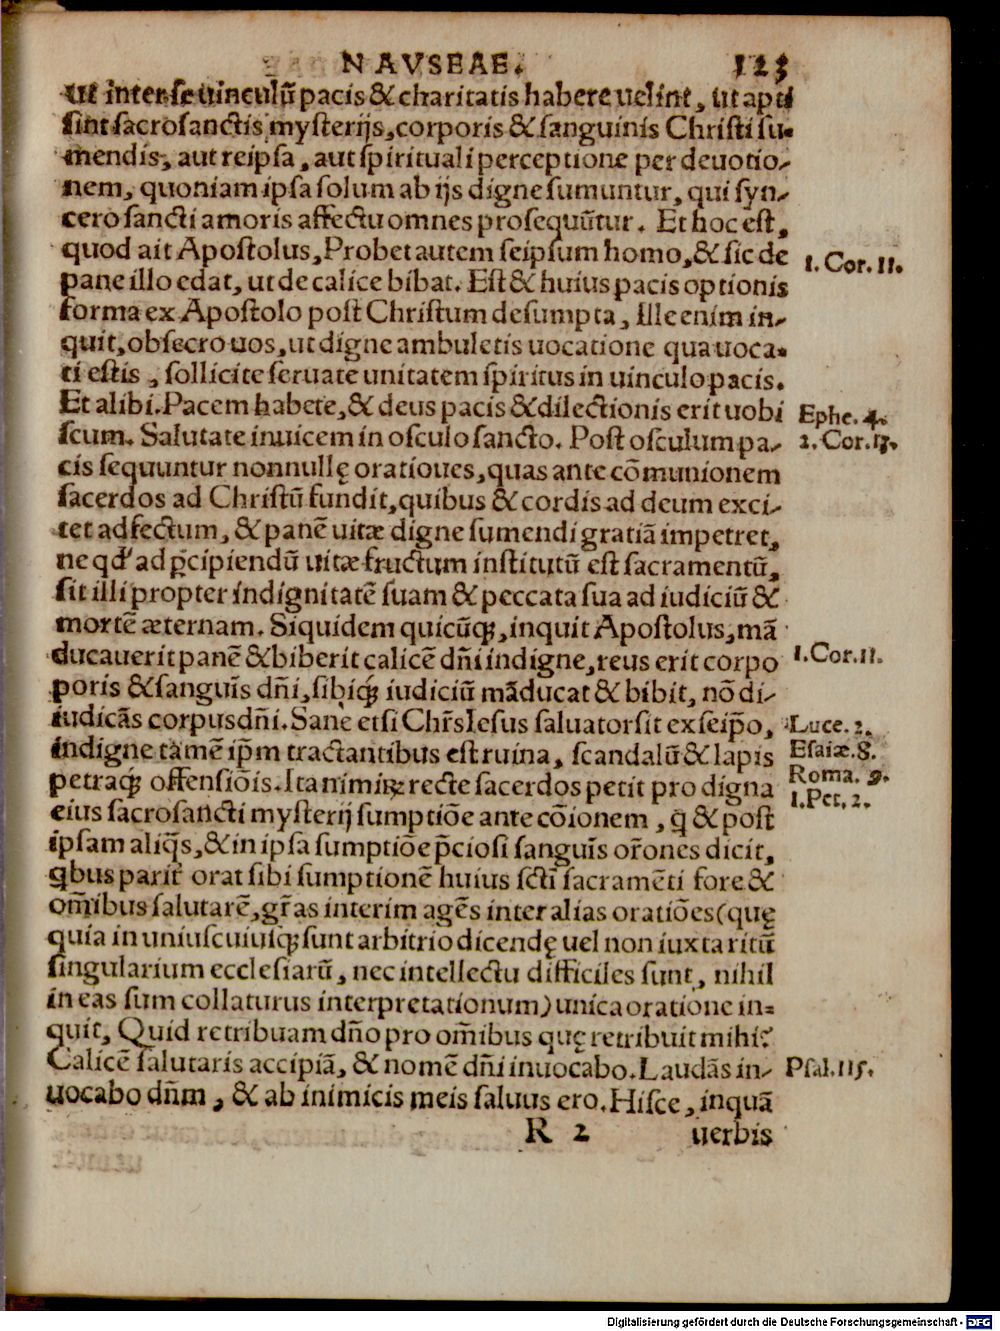 NAVSEAE. 123
ut inter se uinculũ pacis & charitatis habere uelint, ut apti
sint sacrosanctis mysterijs, corporis & sanguinis Christi su-
mendis, aut reipsa, aut spirituali perceptione per deuotio-
nem, quoniam ipsa solum ab ijs digne sumuntur, qui syn-
cero sancti amoris affectu omnes prosequũtur. Et hoc est,
quod ait Apostolus, Probet autem seipsum homo, & sic de
1. Cor. 11.
pane illo edat, ut de calice bibat. Est & huius pacis optionis
forma ex Apostolo post Christum desumpta, Ille enim in-
quit, obsecro uos, ut digne ambuletis uocatione qua uoca-
ti estis, sollicite seruate unitatem spiritus in uinculo pacis.
Et alibi. Pacem habete, & deus pacis & dilectionis erit uobi
Ephe. 4.
scum. Salutate inuicem in osculo sancto. Post osculum pa-
2. Cor. 13.
cis sequuntur nonnullę oratioues, quas ante cõmunionem
sacerdos ad Christũ fundit, quibus & cordis ad deum exci-
tet adfectum, & panẽ uitæ digne sumendi gratiã impetret,
ne qd' ad p̃cipiendũ uitæ fructum institutũ est sacramentũ,
sit illi propter indignitatẽ suam & peccata sua ad iudiciũ &
mortẽ æternam. Siquidem quicũq;, inquit Apostolus, mã
ducauerit panẽ & biberit calicẽ dñi indigne, reus erit corpo
1. Cor. 11.
poris & sanguĩs dñi, sibiq; iudiciũ mãducat & bibit, nõ di-
iudicãs corpus dñi. Sane etsi Chr̃s Iesus saluator sit ex seip̃o,
Luce. 2.
indigne tamẽ ip̃m tractantibus est ruina, scandalũ & lapis
Esaiæ. 8.
petraq; offensiõis. Ita nimiꝝ recte sacerdos petit pro digna
Roma. 9.
1. Pet. 2.
eius sacrosancti mysterij sumptiõe ante cõionem, q̃ & post
ipsam aliq̃s, & in ipsa sumptiõe p̃ciosi sanguĩs or̃ones dicit,
q̃bus parit̃ orat sibi sumptionẽ huius sct̃i sacramẽti fore &
om̃ibus salutarẽ, gr̃as interim agẽs inter alias oratiões (quę
quia in uniuscuiuiq; sunt arbitrio dicendę uel non iuxta ritũ
singularium ecclesiarũ, nec intellectu difficiles sunt, nihil
in eas sum collaturus interpretationum) unica oratione in-
quit, Quid retribuam dño pro om̃ibus quę retribuit mihi?
Calicẽ salutaris accipiã, & nomẽ dñi inuocabo. Laudãs in-
Psal. 115.
uocabo dñm, & ab inimicis meis saluus ero. Hisce, inquã
R 2 uerbis
Digitalisierung gefördert durch die Deutsche Forschungsgemeinschaft - DFG